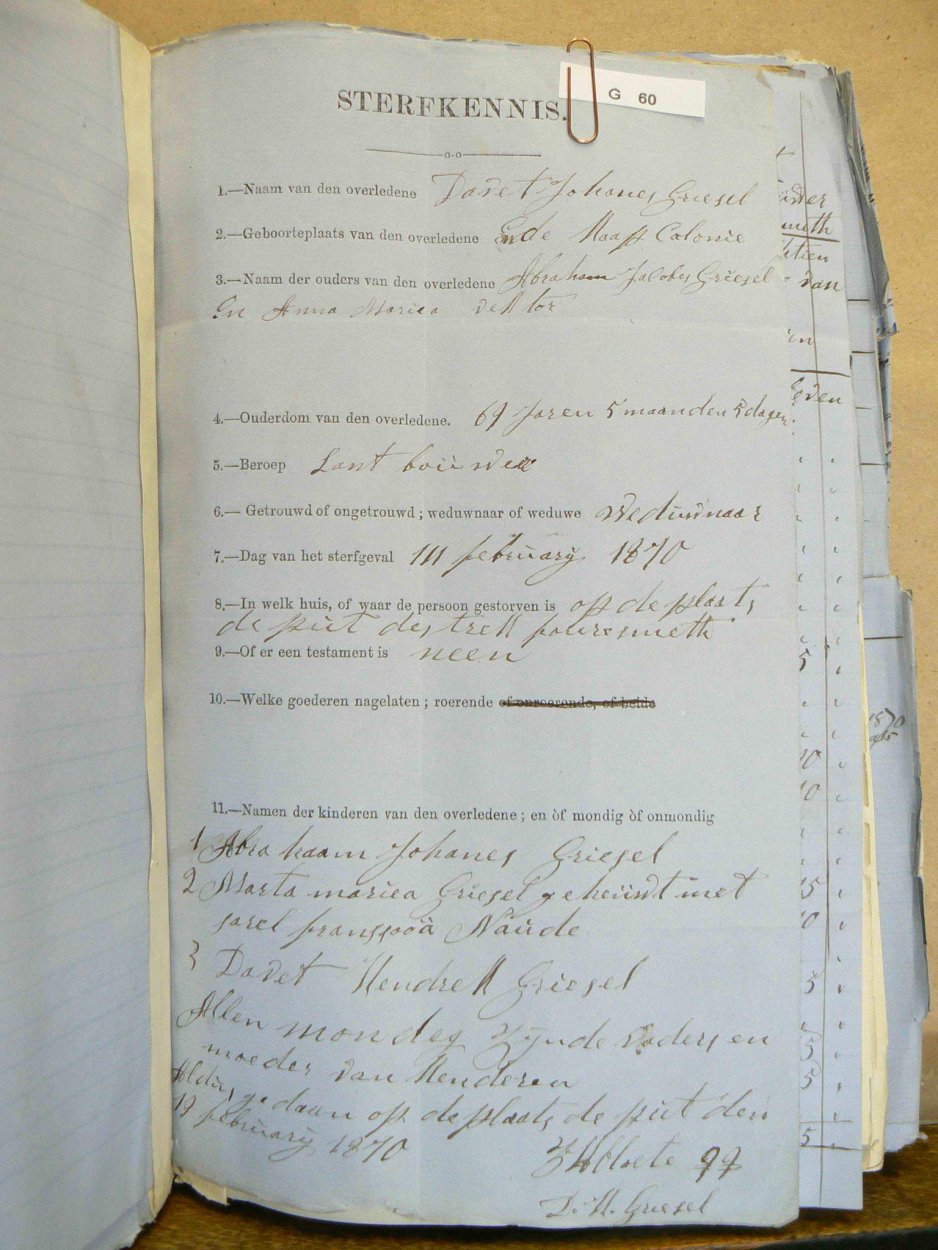 G 60
STERFKENNIS.
1.—Naam van den overledene Davet Johanes Griesel
2.—Geboorteplaats van den overledene de Kaap Colonie
3.—Naam der ouders van den overledene Abraham Jacobes Griesel
En Anna Mariea
4.—Ouderdom van den overledene. 69 Jaren 5 maanden 5 dagen
5.—Beroep Lant
6.—Getrouwd of ongetrouwd; weduwnaar of weduwe Weduwnaar
7.—Dag van het sterfgeval februarij 1870
8.—In welk huis, of waar de persoon gestorven is op de plaats
de put destrek
9.—Of er een testament is neen
10.—Welke goederen nagelaten; roerende of onroerende, of beide
11.—Namen der kinderen van den overledene; en òf mondig òf onmondig
1 Abrahaam Johanes Griesel
2 Marta mariea Griesel met
Naude
3 Davet Hendrek Griesel
Allen mondeg zynde vaders en
moeder van kenderen
Aldus gedaan op de plaats de put den
19 februarij 1870
D. H. Griesel